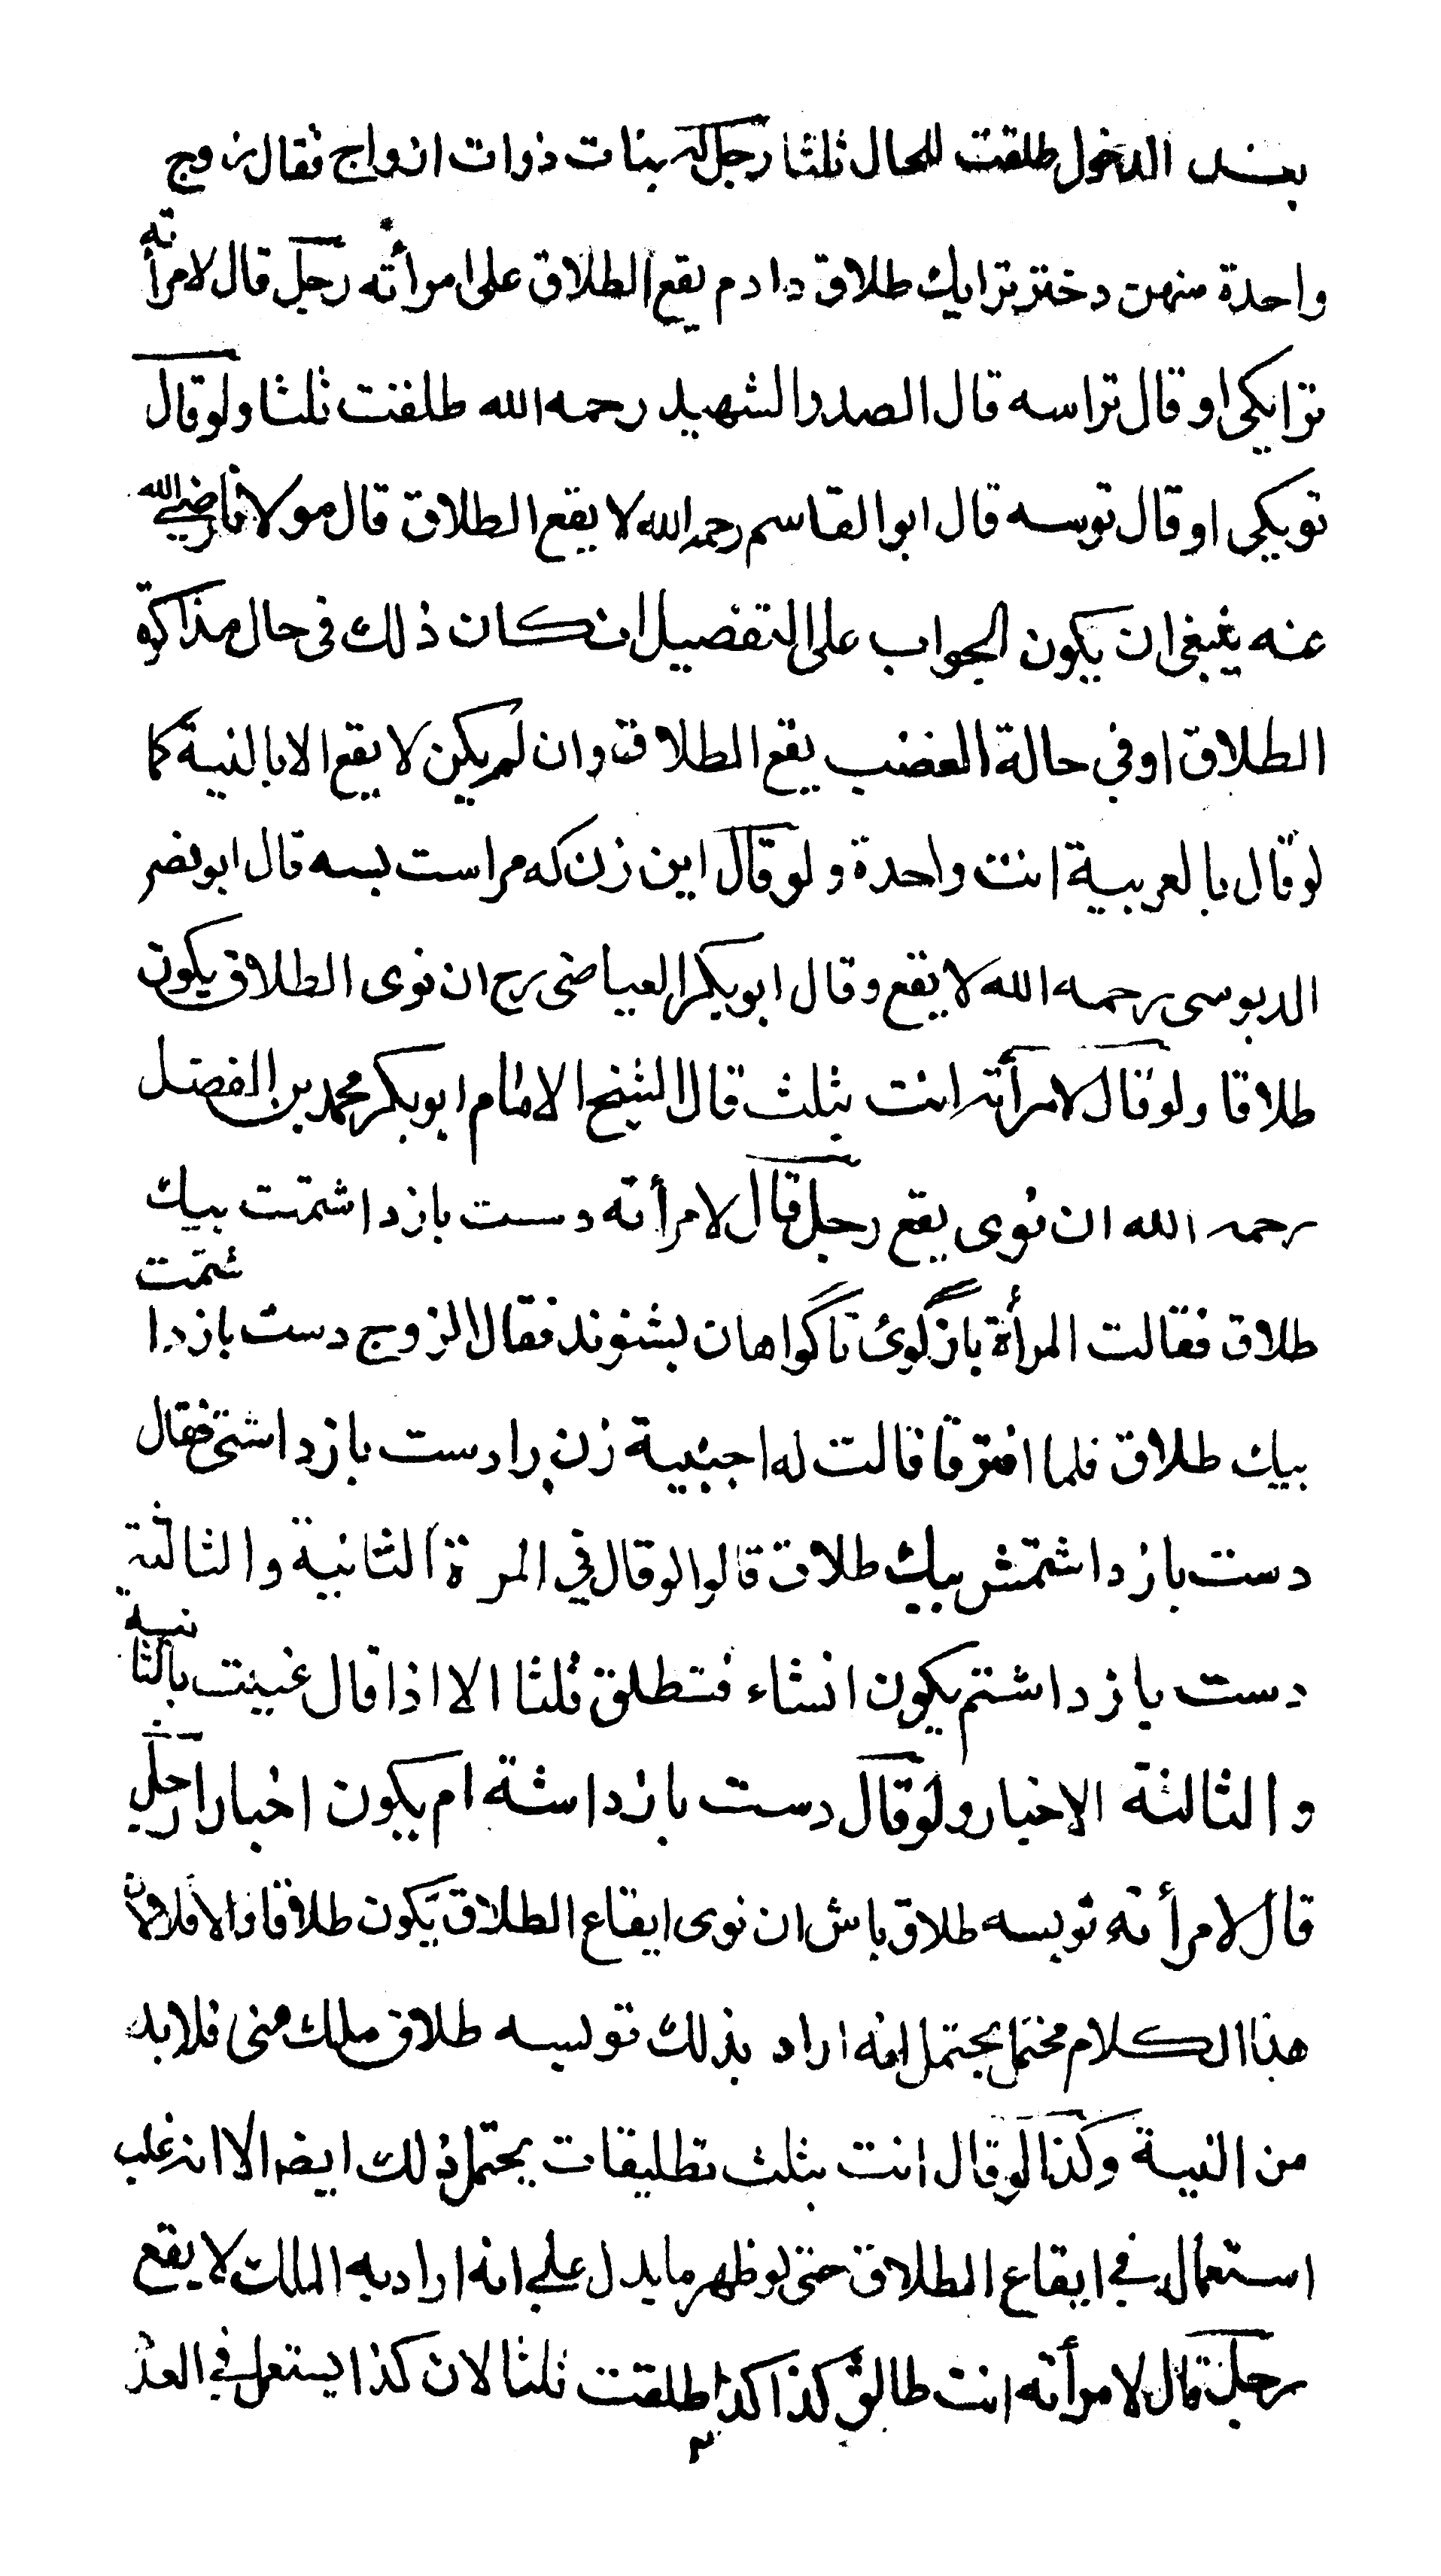 بعد الدخول طلقت للحال ثلثا رجل له بنات ذوات ازواج فقال زوج
واحدة منهن دختر ترا يك طلاق دادم يقع الطلاق على امرأته رجل قال لامرأته
ترا يكى او قال ترا سه قال الصدر الشهيد رحمه الله طلقت ثلثا ولو قال
تو يكى او قال تو سه قال ابو القاسم رحمه الله لا يقع الطلاق قال مولانا رضي الله
عنه ينبغى ان يكون الجواب على التفصيل ان كان ذلك فى حال مذاكرة
الطلاق او في حالة الغضب يقع الطلاق وان لم يكن لا يقع الا بالنية كما
لو قال بالعربية انت واحدة ولو قال اين زن كه مراست بسه قال ابو نصر
الدبوسى رحمه الله لا يقع وقال ابو بكر العياضى رح ان نوى الطلاق يكون
طلاقا ولو قال لامرأته انت بثلث قال الشيخ الامام ابو بكر محمد بن الفضل
رحمه الله ان نوى يقع رجل قال لامرأته دست بازداشتمت بيك
طلاق فقالت المرأة بازگوى تا گواهان بشنوند فقال الزوج دست بازداشتمت
بيك طلاق فلما افترقا قالت له اجنبية زن را دست بازداشتى فقال
دست بازداشتمش بيك طلاق قالوا لو قال في المرة الثانية والثالثة
دست بازداشتم يكون انشاء فتطلق ثلثا الا اذا قال عنيت بالثانية
والثالثة الاخبار ولو قال دست بازداشته ام يكون اخبارا رجل
قال لامرأته تو بسه طلاق باش ان نوى ايقاع الطلاق يكون طلاقا والا فلا لان
هذا الكلام محتمل يحتمل انه اراد بذلك تو بسه طلاق ملك منى فلا بد
من النية وكذا لو قال انت بثلث تطليقات يحتمل ذلك ايضا الا انه غلب
استعماله في ايقاع الطلاق حتى لو ظهر ما يدل على انه اراد به الملك لا يقع
رجل قال لامرأته انت طالق كذا كذا طلقت ثلثا لان كذا يستعمل في العدد
٣